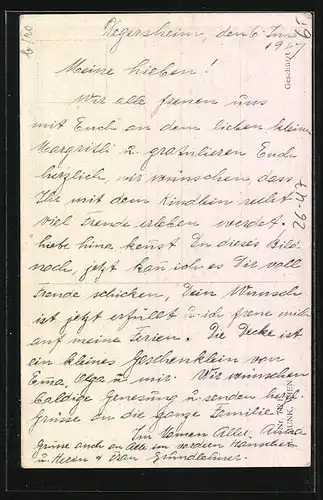 Degersheim, den 6. Juni
1927
Meine Lieben!
Wir alle freuen uns
mit Euch an dem lieben kleinen
Margritli u. gratulieren Euch
herzlich, wir wünschen, dass
Ihr mit dem Kindlein recht
viel Freude erleben werdet.
Liebe kennst Du dieses Bild
noch, jetzt kan ich es Dir voll
Freude schicken, Dein Wunsch
ist jetzt erfüllt u. ich freue mich
auf meine Ferien. Die Decke ist
ein kleines Geschenklein von
Emma, Olga u. mir. Wir wünschen
baldige Genesung u. senden herzl.
Grüsse an die ganze Familie
Im Namen Aller, Anna
Grüsse auch an Alle im
u. Herrn & Frau
Geschützt
26-47